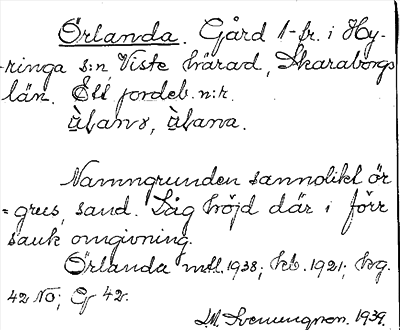 Örlanda. Gård 1-fr. i Hy-
ringa s:n Viste härad, Skaraborgs
län. Ett jordeb. n:r.
Namngrunden sannolikt ör
= grus, sand. Låg höjd där i förr
sank omgivning.
Örlanda mtl. 1938; kb. 1921; hg.
42 NO; Gf 42.
M. Svenungson. 1939.